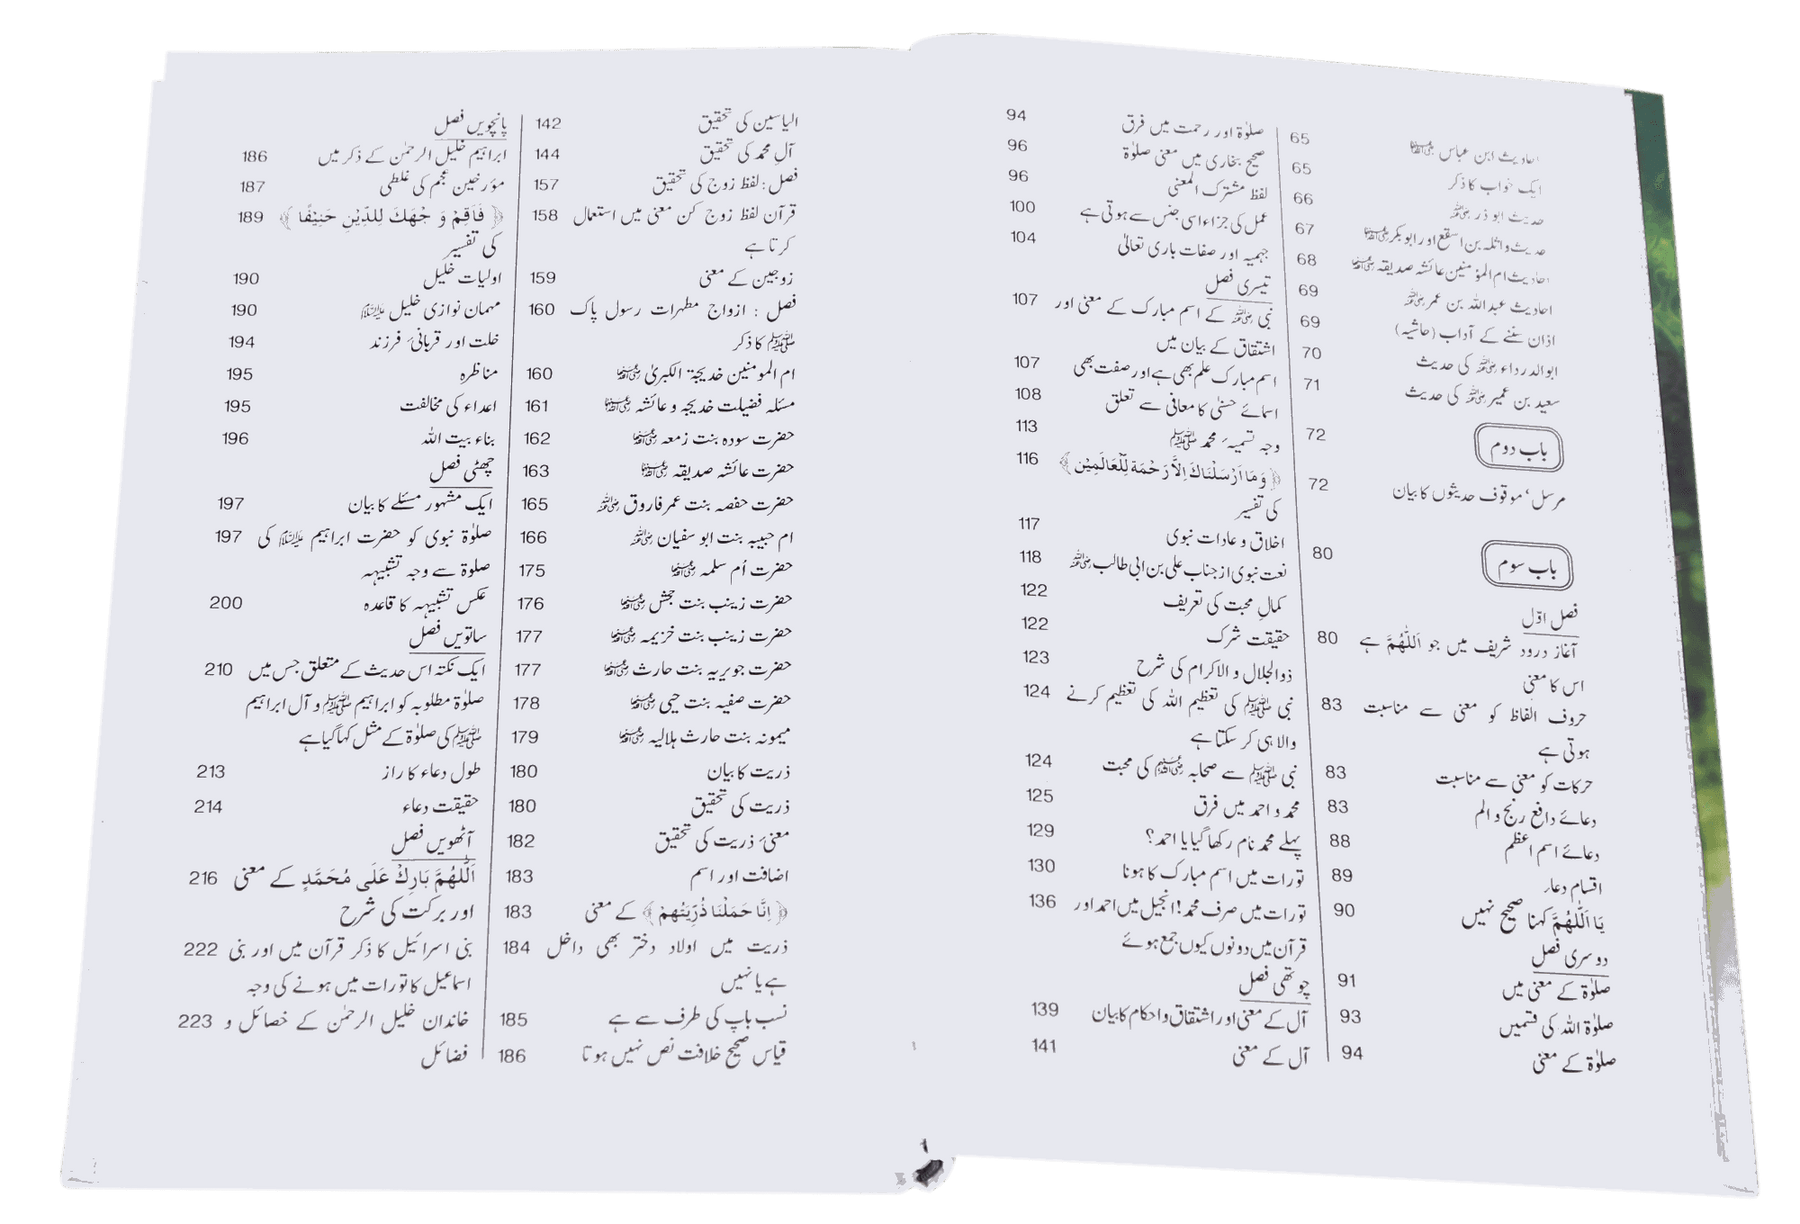 احادیث ابن عباس ؓ 65
ایک خواب کا ذکر 65
حدیث ابو ذر ؓ 66
حدیث واثلہ بن اسقع اور ابوبکر ؓ 67
احادیث ام المؤمنین عائشہ صدیقہ ؓ 68
احادیث عبداللہ بن عمر ؓ 69
اذان سننے کے آداب (حاشیہ) 69
ابوالدرداء ؓ کی حدیث 70
سعید بن عمیر ؓ کی حدیث 71
باب دوم 72
مرسل‘ موقوف حدیثوں کا بیان 72
باب سوم 80
فصل اوّل
آغاز درود شریف میں جو اَللّٰهُمَّ ہے 80
اس کا معنی
حروف الفاظ کو معنی سے مناسبت 83
ہوتی ہے
حرکات کو معنی سے مناسبت 83
دعائے دافع رنج و الم 83
دعائے اسم اعظم 88
اقسام دعاء 89
يَا اَللّٰهُمَّ کہنا صحیح نہیں 90
دوسری فصل
صلوٰۃ کے معنی میں 91
صلوٰۃ اللہ کی قسمیں 93
صلوٰۃ کے معنی 94
صلوٰۃ اور رحمت میں فرق 94
صحیح بخاری میں معنی صلوٰۃ 96
لفظ مشترک المعنی 96
عمل کی جزاء اسی جنس سے ہوتی ہے 100
جہمیہ اور صفات باری تعالیٰ 104
تیسری فصل
نبی ﷺ کے اسم مبارک کے معنی اور 107
اشتقاق کے بیان میں
اسم مبارک علم بھی ہے اور صفت بھی 107
اسمائے حسنیٰ کا معانی سے تعلق 108
وجہ تسمیہ ٔ محمد ﷺ 113
﴿وَمَا اَرْسَلْنَاكَ اِلَّا رَحْمَةً لِّلْعَالَمِيْن﴾ 116
کی تفسیر
اخلاق و عادات نبوی 117
نعت نبوی از جناب علی بن ابی طالب ؓ 118
کمالِ محبت کی تعریف 122
حقیقت شرک 122
ذوالجلال والاکرام کی شرح 123
نبی ﷺ کی تعظیم اللہ کی تعظیم کرنے 124
والا ہی کر سکتا ہے
نبی ﷺ سے صحابہ ؓ کی محبت 124
محمد و احمد میں فرق 125
پہلے محمد نام رکھا گیا یا احمد؟ 129
تورات میں اسم مبارک کا ہونا 130
تورات میں صرف محمد! انجیل میں احمد اور 136
قرآن میں دونوں کیوں جمع ہوئے
چوتھی فصل
آل کے معنی اور اشتقاق و احکام کا بیان 139
آل کے معنی 141
الیاسین کی تحقیق 142
آلِ محمد کی تحقیق 144
فصل: لفظ زوج کی تحقیق 157
قرآن لفظ زوج کن معنی میں استعمال 158
کرتا ہے
زوجین کے معنی 159
فصل : ازواج مطہرات رسول پاک 160
ﷺ کا ذکر
ام المومنین خدیجۃ الکبریٰ ؓ 160
مسئلہ فضیلت خدیجہ و عائشہ ؓ 161
حضرت سودہ بنت زمعہ ؓ 162
حضرت عائشہ صدیقہ ؓ 163
حضرت حفصہ بنت عمر فاروق ؓ 165
ام حبیبہ بنت ابو سفیان ؓ 166
حضرت اُم سلمہ ؓ 175
حضرت زینب بنت جحش ؓ 176
حضرت زینب بنت خزیمہ ؓ 177
حضرت جویریہ بنت حارث ؓ 177
حضرت صفیہ بنت حیی ؓ 178
میمونہ بنت حارث ہلالیہ ؓ 179
ذریت کا بیان 180
ذریت کی تحقیق 180
معنیٔ ذریت کی تحقیق 182
اضافت اور اسم 183
﴿اِنَّا حَمَلْنَا ذُرِّيَّتُهِمْ﴾ کے معنی 183
ذریت میں اولاد دختر بھی داخل 184
ہے یا نہیں
نسب باپ کی طرف سے ہے 185
قیاس صحیح خلافت نص نہیں ہوتا 186
پانچویں فصل
ابراہیم خلیل الرحمٰن کے ذکر میں 186
مؤرخین عجم کی غلطی 187
﴿فَاَقِمْ وَ جْهَكَ لِلدِّيْنِ حَنِيْفًا﴾ 189
کی تفسیر
اولیات خلیل 190
مہمان نوازی خلیل ؑ 190
خلت اور قربانیٔ فرزند 194
مناظرہ 195
اعداء کی مخالفت 195
بناء بیت اللہ 196
چھٹی فصل
ایک مشہور مسئلے کا بیان 197
صلوٰۃ نبوی کو حضرت ابراہیم ؑ کی 197
صلوٰۃ سے وجہ تشبیہہ
عکس تشبیہہ کا قاعدہ 200
ساتویں فصل
ایک نکتہ اس حدیث کے متعلق جس میں 210
صلوٰۃ مطلوبہ کو ابراہیم ﷺ و آل ابراہیم
ﷺ کی صلوٰۃ کے مثل کہا گیا ہے
طول دعاء کا راز 213
حقیقت دعاء 214
آٹھویں فصل
اَللّٰهُمَّ بَارِكْ عَلَى مُحَمَّدٍ کے معنی 216
اور برکت کی شرح
بنی اسرائیل کا ذکر قرآن میں اور بنی 222
اسماعیل کا تورات میں ہونے کی وجہ
خاندان خلیل الرحمٰن کے خصائل و 223
فضائل